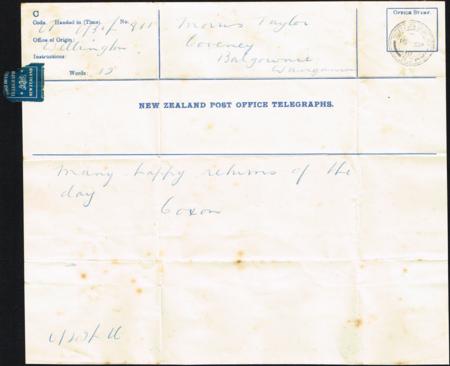 C
Code. Handed in (Time). No.
Office of Origin:
Wellington
Instructions:
Words: 12
Morris Taylor
Coveney
Balgownie
Wanganui
Office Stamp.
NEW ZEALAND
NEW ZEALAND POST OFFICE TELEGRAPHS.
many happy returns of the
day
Coxon